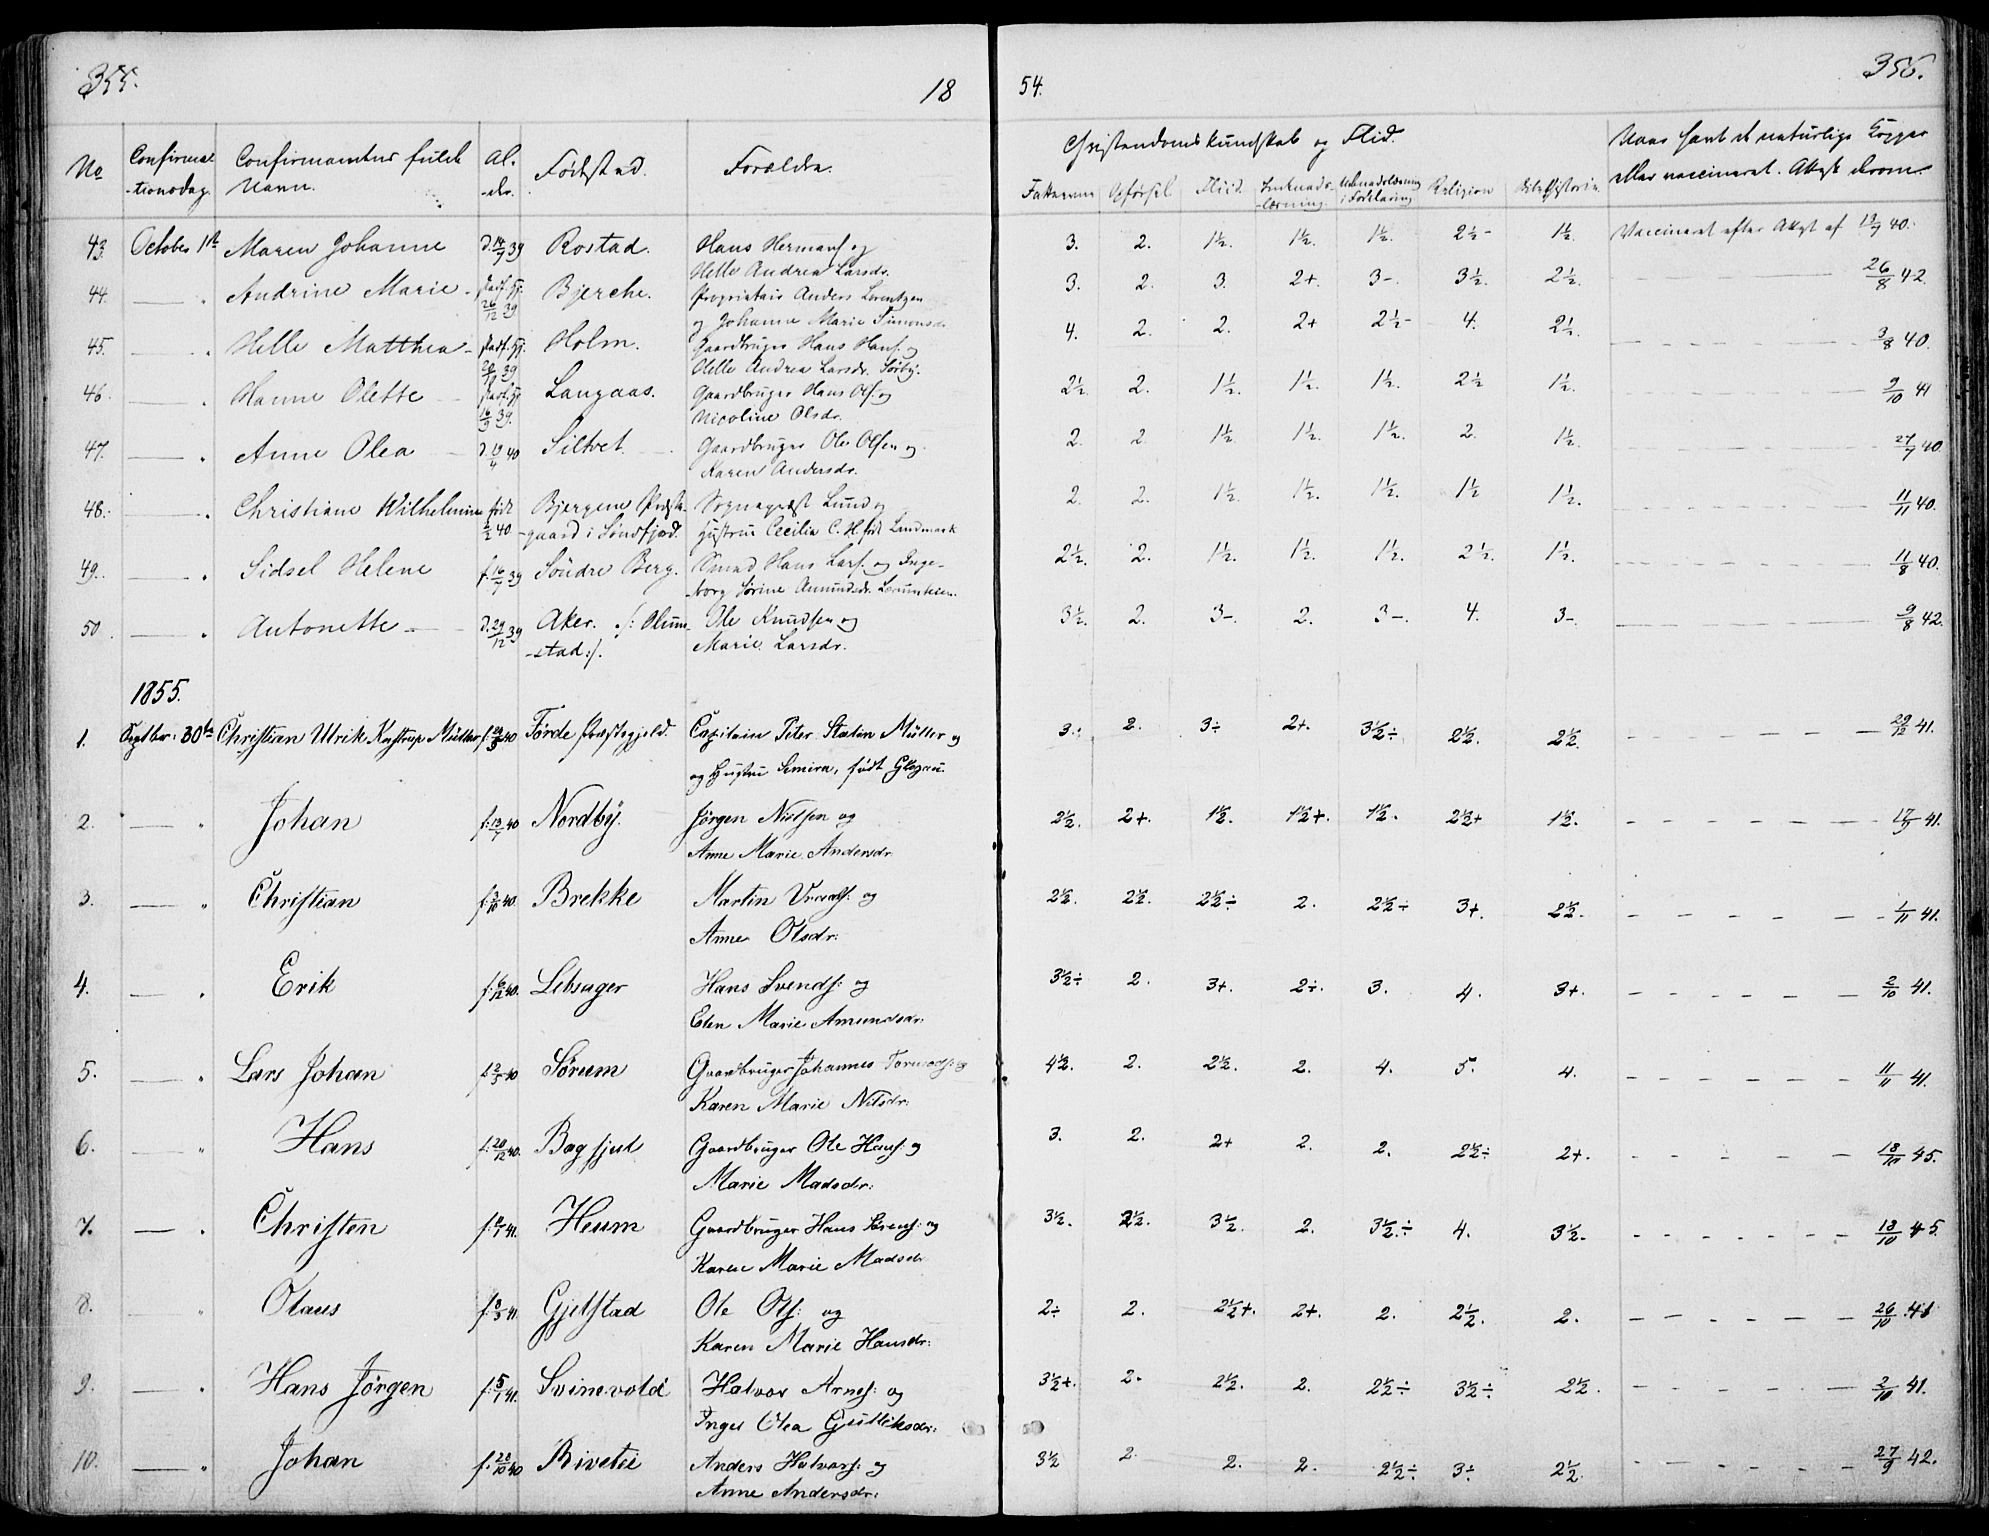 355.
18
54.
356.
No
Confirma-
-tionsdag.
Confirmantens fulde
Navn.
Al-
-der.
Fødested.
Forældre.
Christendomskundskab og Flid.
Opførsel
Fliid.
Religion
Naar havt de naturlige Kopper
eller vaccineret. Attest derom
43. October 1ste Maren Johanne d. 14/7 39 Rostad. Hans Hermans. og 3. 2. 1½. 1½. 1½. 2½- 1½. Vaccineret efter Attest af 19/7 40.
Helle Andrea Larsdr.
44. — " Andrine Marie 26/12 39 Bjerche. Proprietair Anders Lorentzen 3. 2. 3. 2+ 3- 3½. 2½. 26/8 42.
og Johanne Marie Simonsdr.
45. — " Helle Matthea 39 Holm. Gaardbruger Hans Hans. og 4. 2. 2. 2+ 2½- 4. 2½. 3/8 40.
Helle Andrea Larsdr. Sørby.
46. — " Hanne Olette 16/9 39. Langaas. Gaardbruger Hans Ols. og 2½. 2. 1½. 1½. 1½. 2½ 1½. 9/10 41
Nicoline Olsdr.
47. — " Anne Olea d. 19/4 40 Siltvet. Gaardbruger Ole Olsen og 2. 2. 1½. 1½. 1½. 2. 1½. 27/7 40.
Karen Andersdr.
48. — " Christiane Wilhelmine født Bjergene Præste- Sognepræst Lund og 2. 2. 1½. 1½. 1½. 1½ 1½. 11/11 40.
2/2 40 -gaard i Søndfjord. Hustrue Cecilia C. H. født Landmark
49. — " Sidsel Helene f. 16/7 39 Søndre Berg. Smed Hans Lars. og Inge- 2½. 2. 1½. 1½. 1½. 2½. 1½. 11/8 40.
-borg Sørine Amundsdr.
50. — " Antonette d. 29/12 39 Aker. /: Olum- Ole Knudsen og 3½. 2. 3-. 2. 3-. 4. 3-. 9/8 42.
-stad :/. Marie Larsdr.
1855.
1. Septbr: 30te Christian Ulrik Kastrup Müller 40 Førde Præstegjeld. Capitain Peter Statin Müller og 3. 2. 3÷ 2+. 3½÷ 2½. 2½. 29/12 41.
og Hustru Semira, født Glogau.
2. — " Johan f: 13/7 40 Nordby. Jørgen Nielsen og 2½. 2+. 1½. 1½+. 1½. 2½+ 1½. 17/9 41.
Anne Marie Andersdr.
3. — " Christian f: 3/10 40. Brekke Martin og 2½. 2½. 2½÷ 2. 2½÷ 3+. 2½. 1/11 41.
Anne Olsdr:
4. — " Erik f: 6/12 40. Lebsager Hans Svends: og 3½÷ 2. 3+. 2÷. 3. 4. 3+. 2/10 41.
Elen Marie Amundsdr:
5. — " Lars Johan 40 Sørum Gaardbruger Johannes Tormods: og 4½. 2. 2½. 2. 4. 5. 4. 11/11 41.
Karen Marie Nilsdr:
6. — " Hans f: 20/12 40. Bagsjet Gaardbruger Ole Hans: og 3. 2. 2+ 2. 2. 2½÷ 2+. 18/10 45.
Marie Madsdr:
7. — " Christen 41. Heum Gaardbruger Hans Sørens: og 3½. 2½. 3½. 2. 3½÷ 4. 3½. 18/10 45.
Karen Marie Madsdr
8. — " Olaus f: 8/3 41. Gjelstad Ole Ols: og 2÷ 2. 2½+. 2+. 2. 2½. 2. 26/10 41
Karen Marie Hansdr:
9. — " Hans Jørgen f: 5/1 41. Svinevold Halvor Arnes: og 3½+. 2. 2½. 2. 2½÷ 3½÷ 2½. 2/10 41.
Inger Olea Gulliksdr:
10. — " Johan f: 28/10 40 Anders Halvors: og 3½ 2. 2. 2. 2½÷ 3÷ 2½. 27/9 42.
Anne Andersdr: